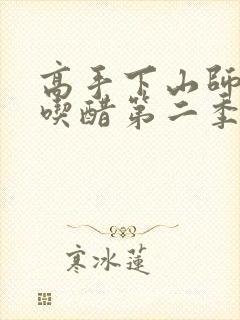 高手下山師
喫醋第二季
寒冰蓮